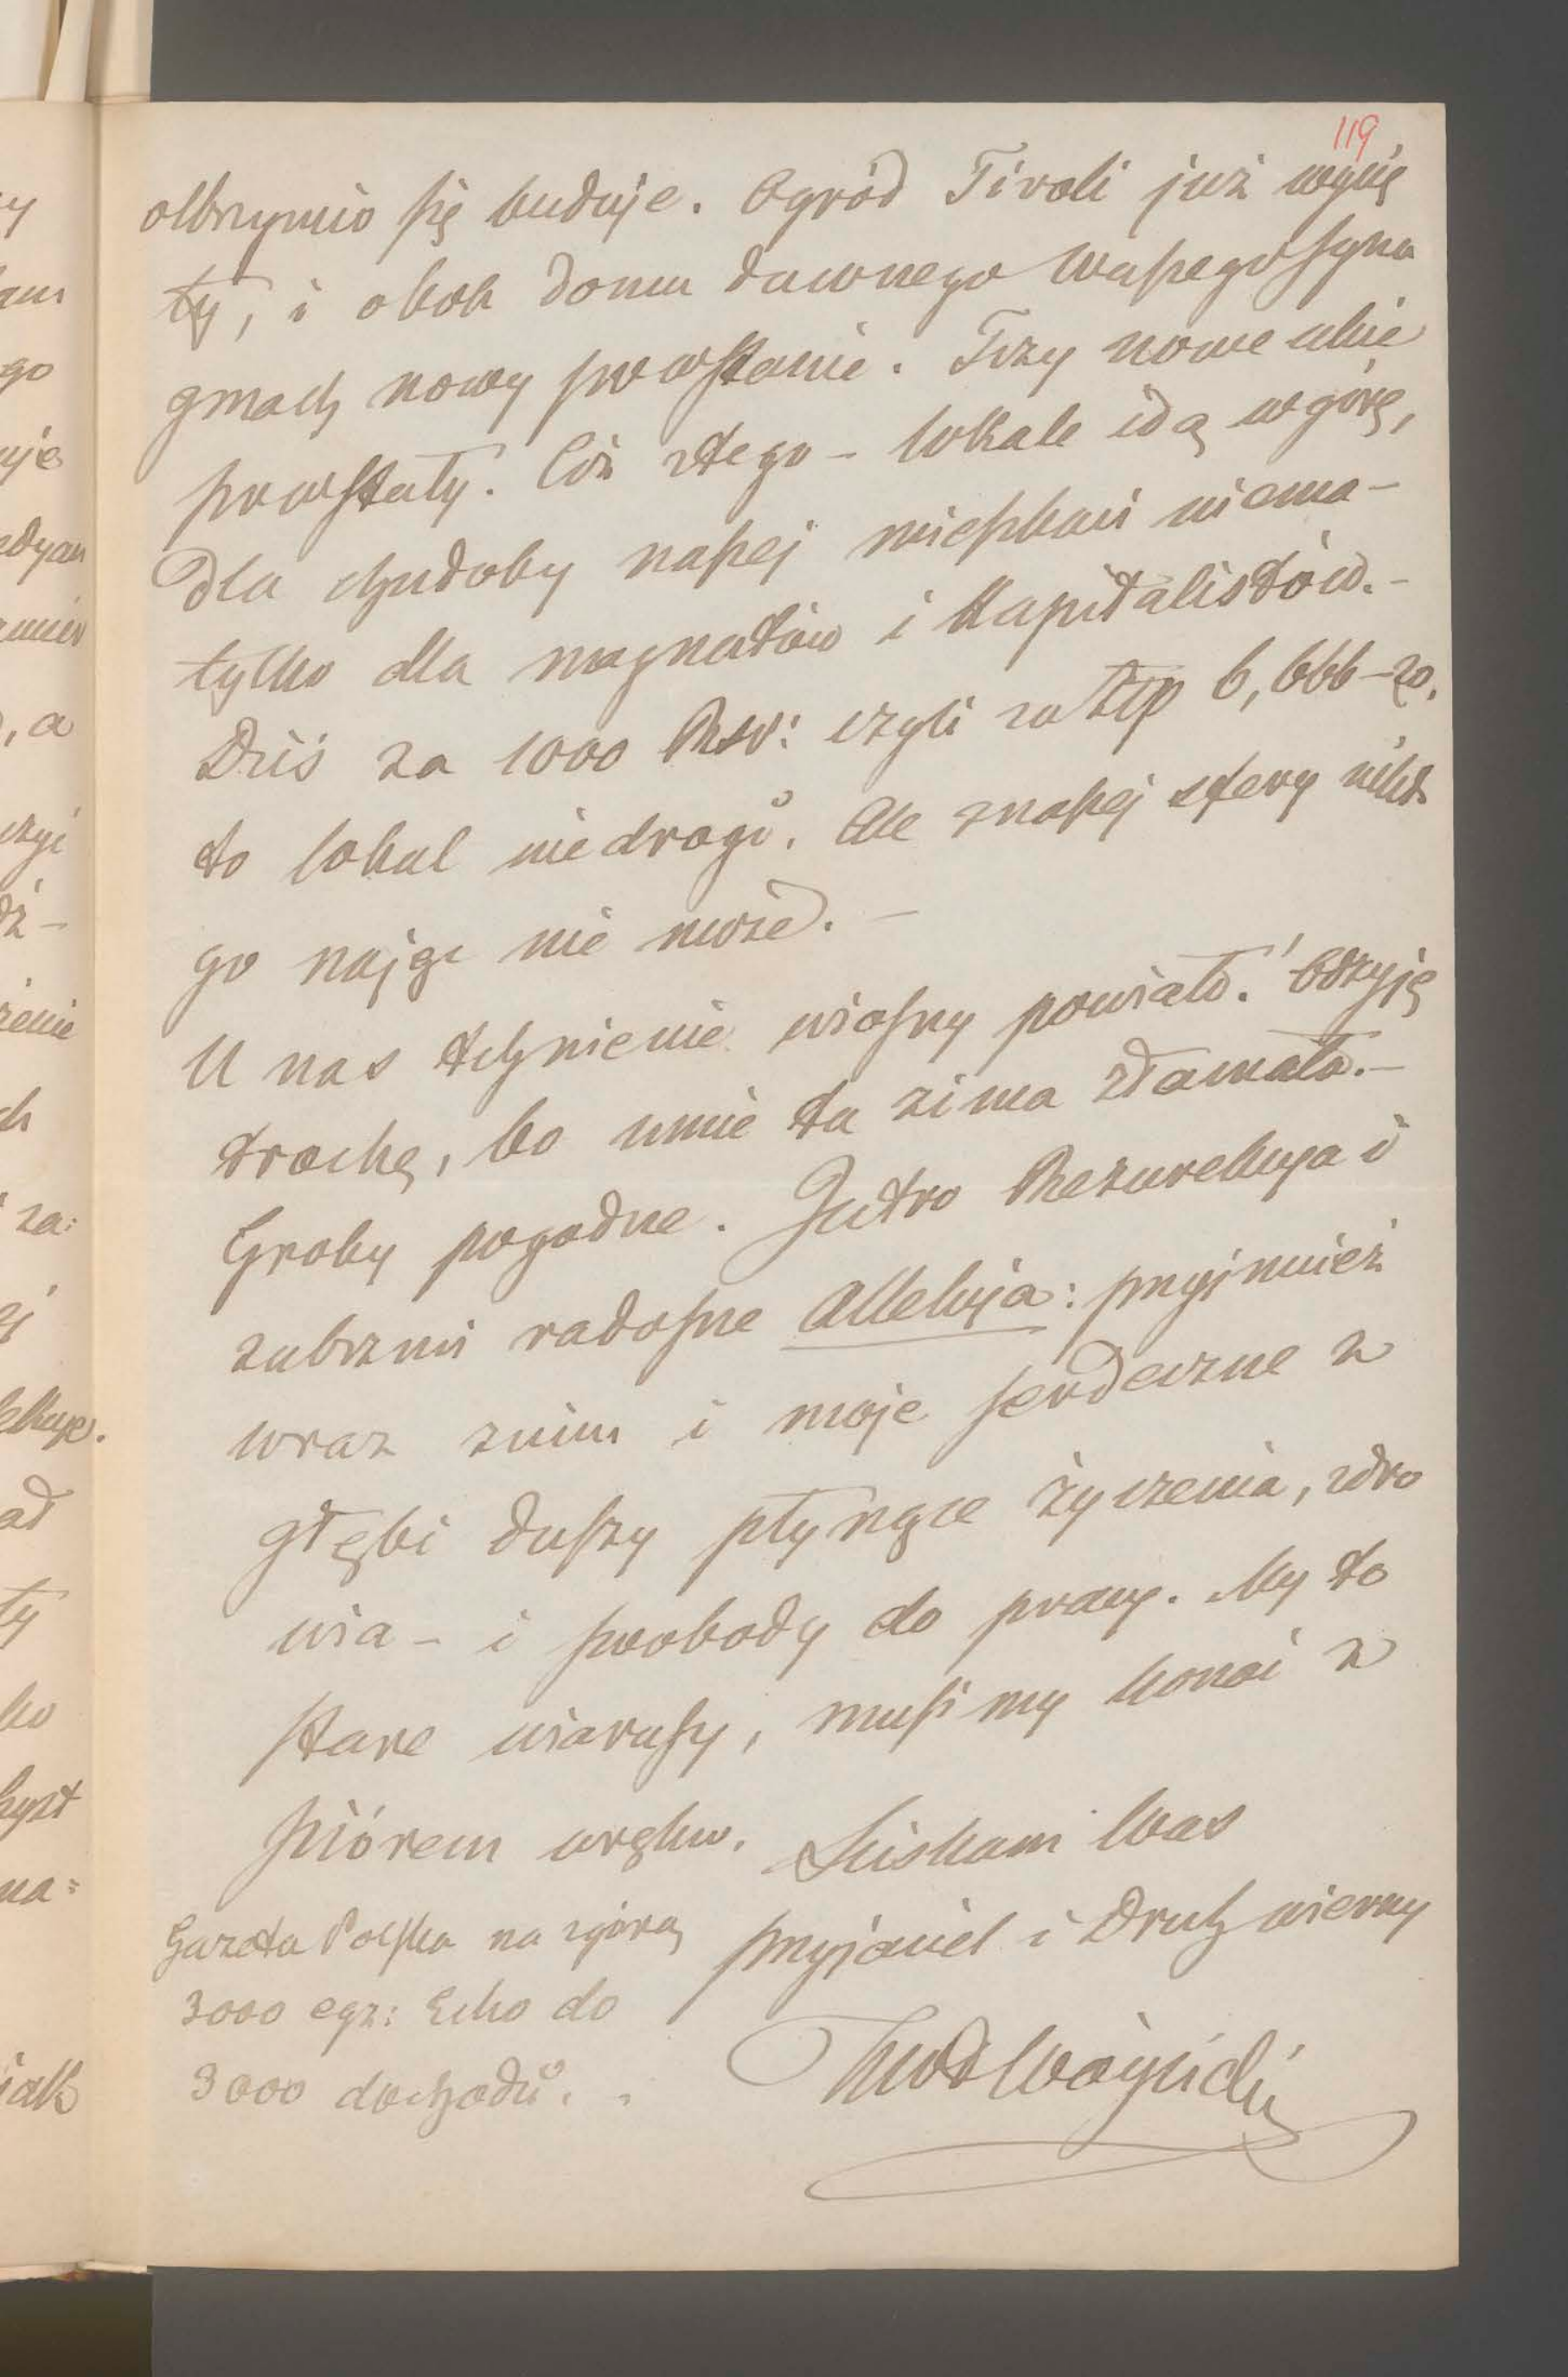 119
olbrzymio się buduje. Ogród Tivoli już wycię
ty, i obok domu dawnego Waszego syna
gmach nowy powstanie. Trzy nowe ulice
powstały. Cóż ztego – lokale idą w górę,
dla chudoby naszej mieszkań niema –
tylko dla magnatów i kapitalistów. –
Dziś za 1000 Rsr: czyli za złp 6,666 – 20.
to lokal niedrogi. Ale z naszej sfery nikt
go nająć nie może. –
U nas tchnienie wiosny powiało. Odżyję
trochę, bo mnie ta zima złamała. –
Groby pogodne. Jutro Rezurekcyja i
zabrzmi radosne Alleluja: przyjmijcież
wraz z nim i moje serdeczne z
głębi duszy płynące życzenia, zdro
wia – i swobody do pracy. My to
stare wiarusy, musimy konać z
piórem w ręku. Ściskam Was
przyjaciel i Druh wierny
KWł Wójcicki
Gazeta Polska na zgórą
3000 egz: Echo do
3000 dochodzi.